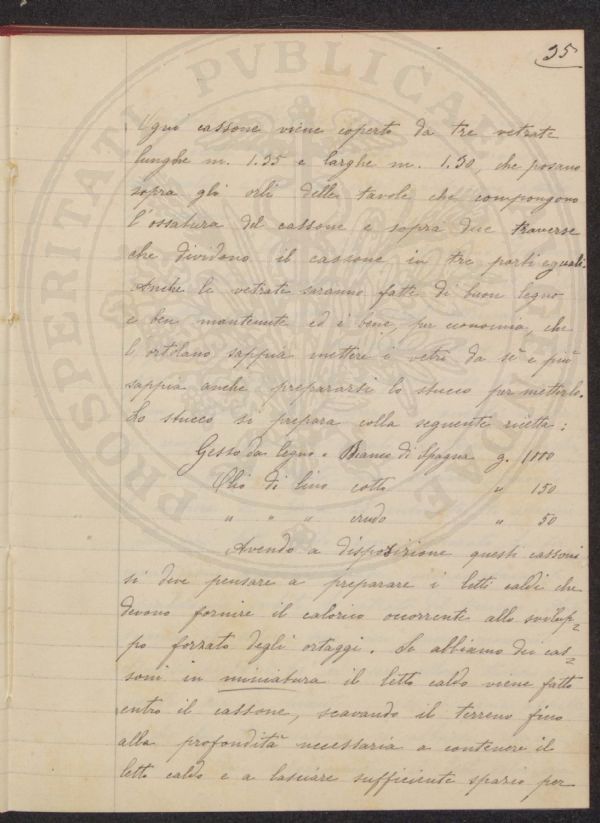 35
Ogni cassone viene coperto da tre vetrate
lunghe m. 1.35 e larghe m. 1.30, che posano
sopra gli orli delle tavole che compongono
l'ossatura del cassone e sopra due traverse
che dividono il cassone in tre parti eguali.
Anche le vetrate saranno fatte di buon legno
e ben mantenute ed è bene, per economia, che
l'ortolano sappia mettere i vetri da sè e più
sappia anche prepararsi lo stucco per metterlo.
Lo stucco si prepara colla seguente ricetta:
Gesso da legno o Bianco di Spagna g. 1000
Olio di lino cotto " 150
" " " crudo " 50
Avendo a disposizione questi cassoni
si deve pensare a preparare i letti caldi che
devono fornire il calorico occorrente allo svilup=
po forzato degli ortaggi. Se abbiamo dei cas=
soni in muratura il letto caldo viene fatto
entro il cassone, scavando il terreno fino
alla profondità necessaria a contenere il
letto caldo e a lasciare sufficiente spazio per
PROSPERITATI PUBLICAE